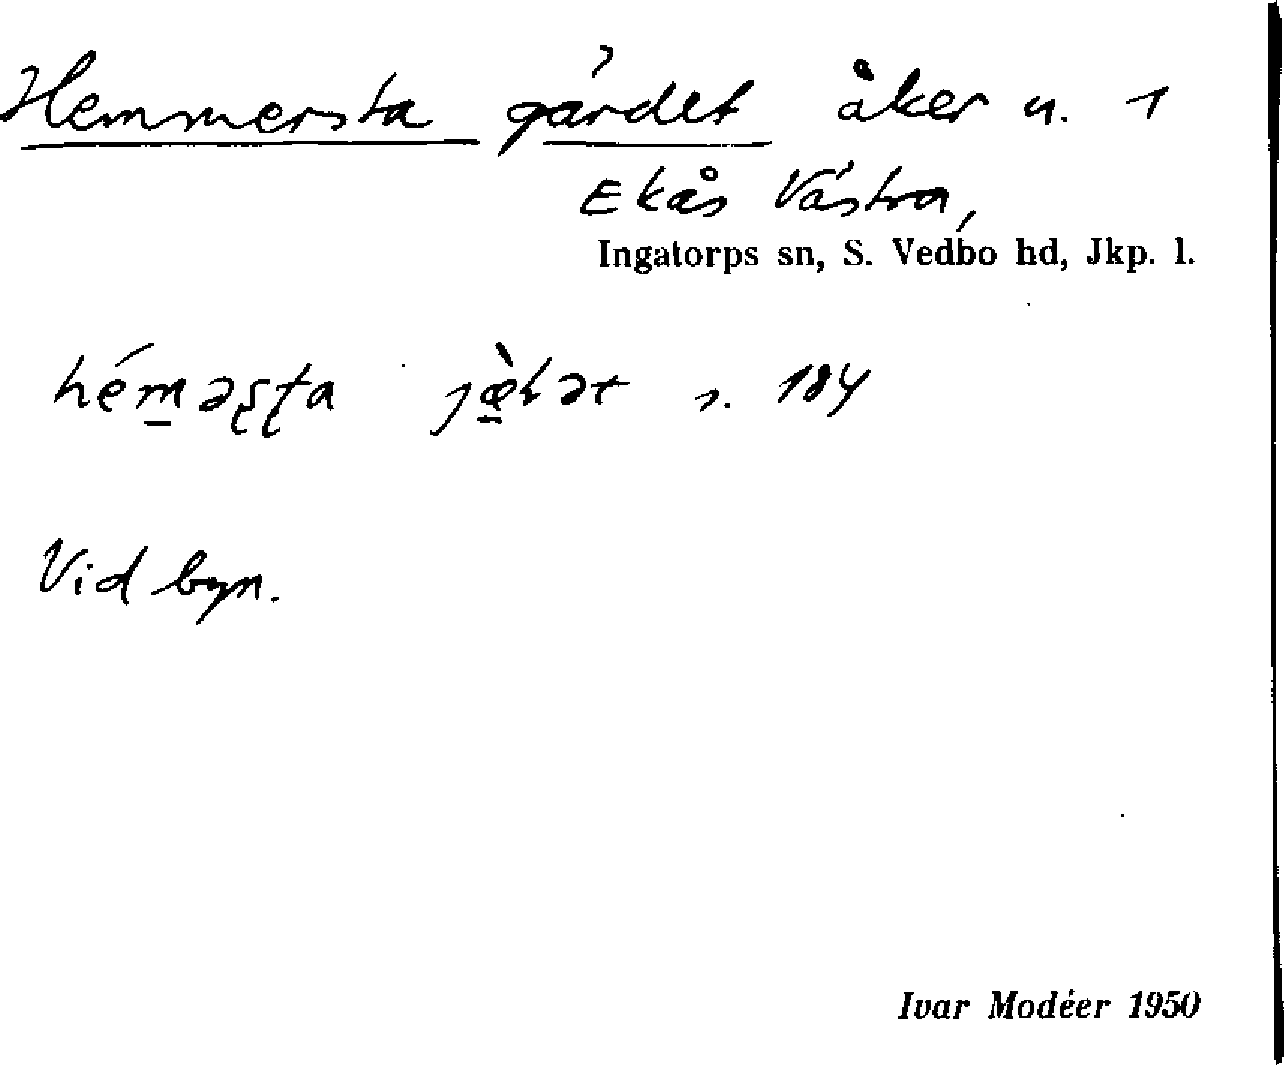 Hemmersta gärdet åker n. 1
Ekås Västra,
Ingatorps sn, S. Vedbo hd, Jkp. l.
s. 184
Vid byn.
Ivar Modéer 1950